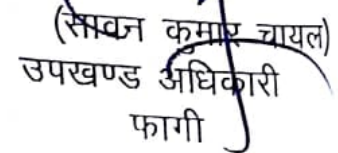 (सावन कुमार चायल)
उपखण्ड अधिकारी
फागी